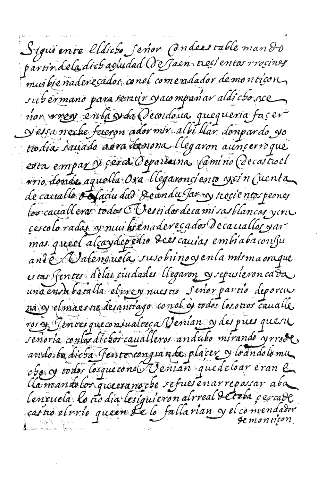 Siguiente El dicho Señor Condestable mando
partir de la dicha çiudad de Jaen trecientos rrocines
mui bien adereçados con el comendador de montiçon
su hermano para seruir y acompañar al dicho se
ñor rrey en la yda de cordoua que queria facer
y essa noche fueron a dormir al billar don pardo y o
tro dia sauado a ora de nona llegaron a un cerro que
esta empar y cerca de porcuna camino de castro el
rrio donde aquella ora llegaron ciento y cinquenta
de cauallo de la ciudad de andujar y trecientos peones
los caualleros todos Vestidos de camisas blancas y en
colorados y mui bien adereçados de cauallos y ar
mas que el alcayde pedro de escauias embiaba con su
Valençuela sobrino y en la misma ora que
estas gentes de las ciudades llegaron y se pusieron cada
una en su batalla el rrey nuestro Señor partio de porcu
na y el maestre de santiago con el y todos los otros caualle
ros y Señores que con su alteça Venian y despues que su
señoria con los dichos caualleros andubo mirando y rrode
ando la dicha gente con grande placer y loandolo mu
cho y todos los que con el Venian que de loar eran
llamandolos que esa noche se fuesen a rreposar a ba
lençuela otro dia le siguieron al rreal de cerca de
castro el rrio que en el lo fallarian y el comendador
de montiçon